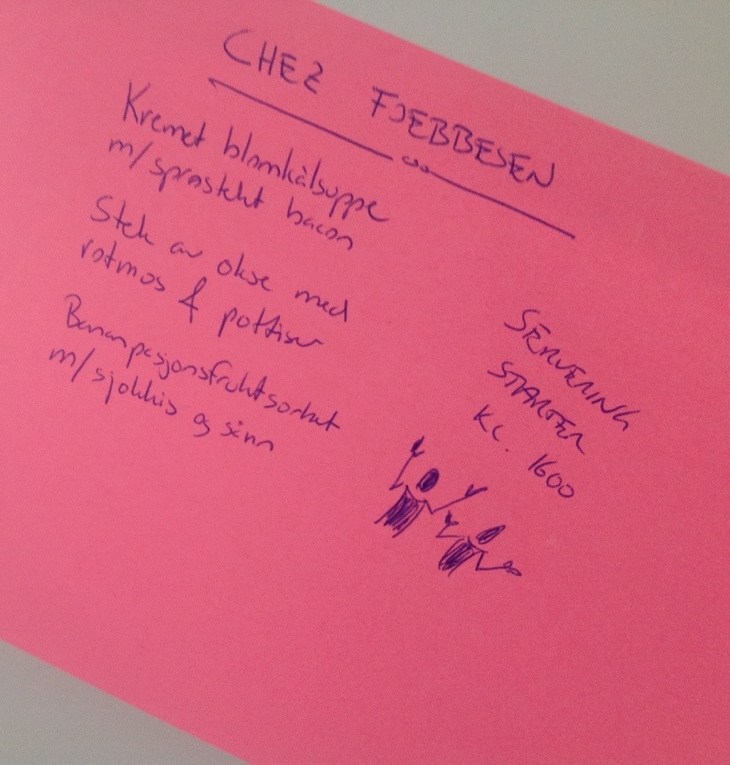 CHEZ FJEBBESEN
Kremet blomkålsuppe
m/sprøstekt bacon
Stek av okse med
rotmos & pottiser
Bananpasjonsfruktsorbet
m/sjokkis og sånn
SERVERING
STARTER
KL. 1600